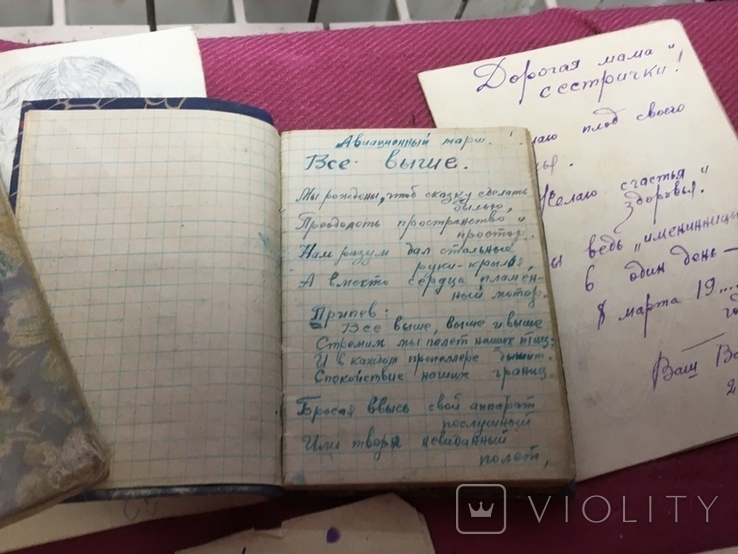 Авиационный марш.
Все выше.
Мы рождены, чтоб сказку сделать
былью,
Преодолеть пространство и
простор.
Нам разум дал стальные
руки-крылья,
А вместо сердца пламен-
ный мотор.
Припев:
Все выше, выше и выше
Стремим мы полет наших птиц.
И в каждом пропеллере дышит
Спокойствие наших границ.
Бросая ввысь свой аппарат
послушный
Или творя невиданный
полет,
Дорогая мама и
сестрички!
плод своего
Желаю счастья и
здоровья.
ведь именинницы
в один день —
8 марта 19....
Ваш
VIOLITY